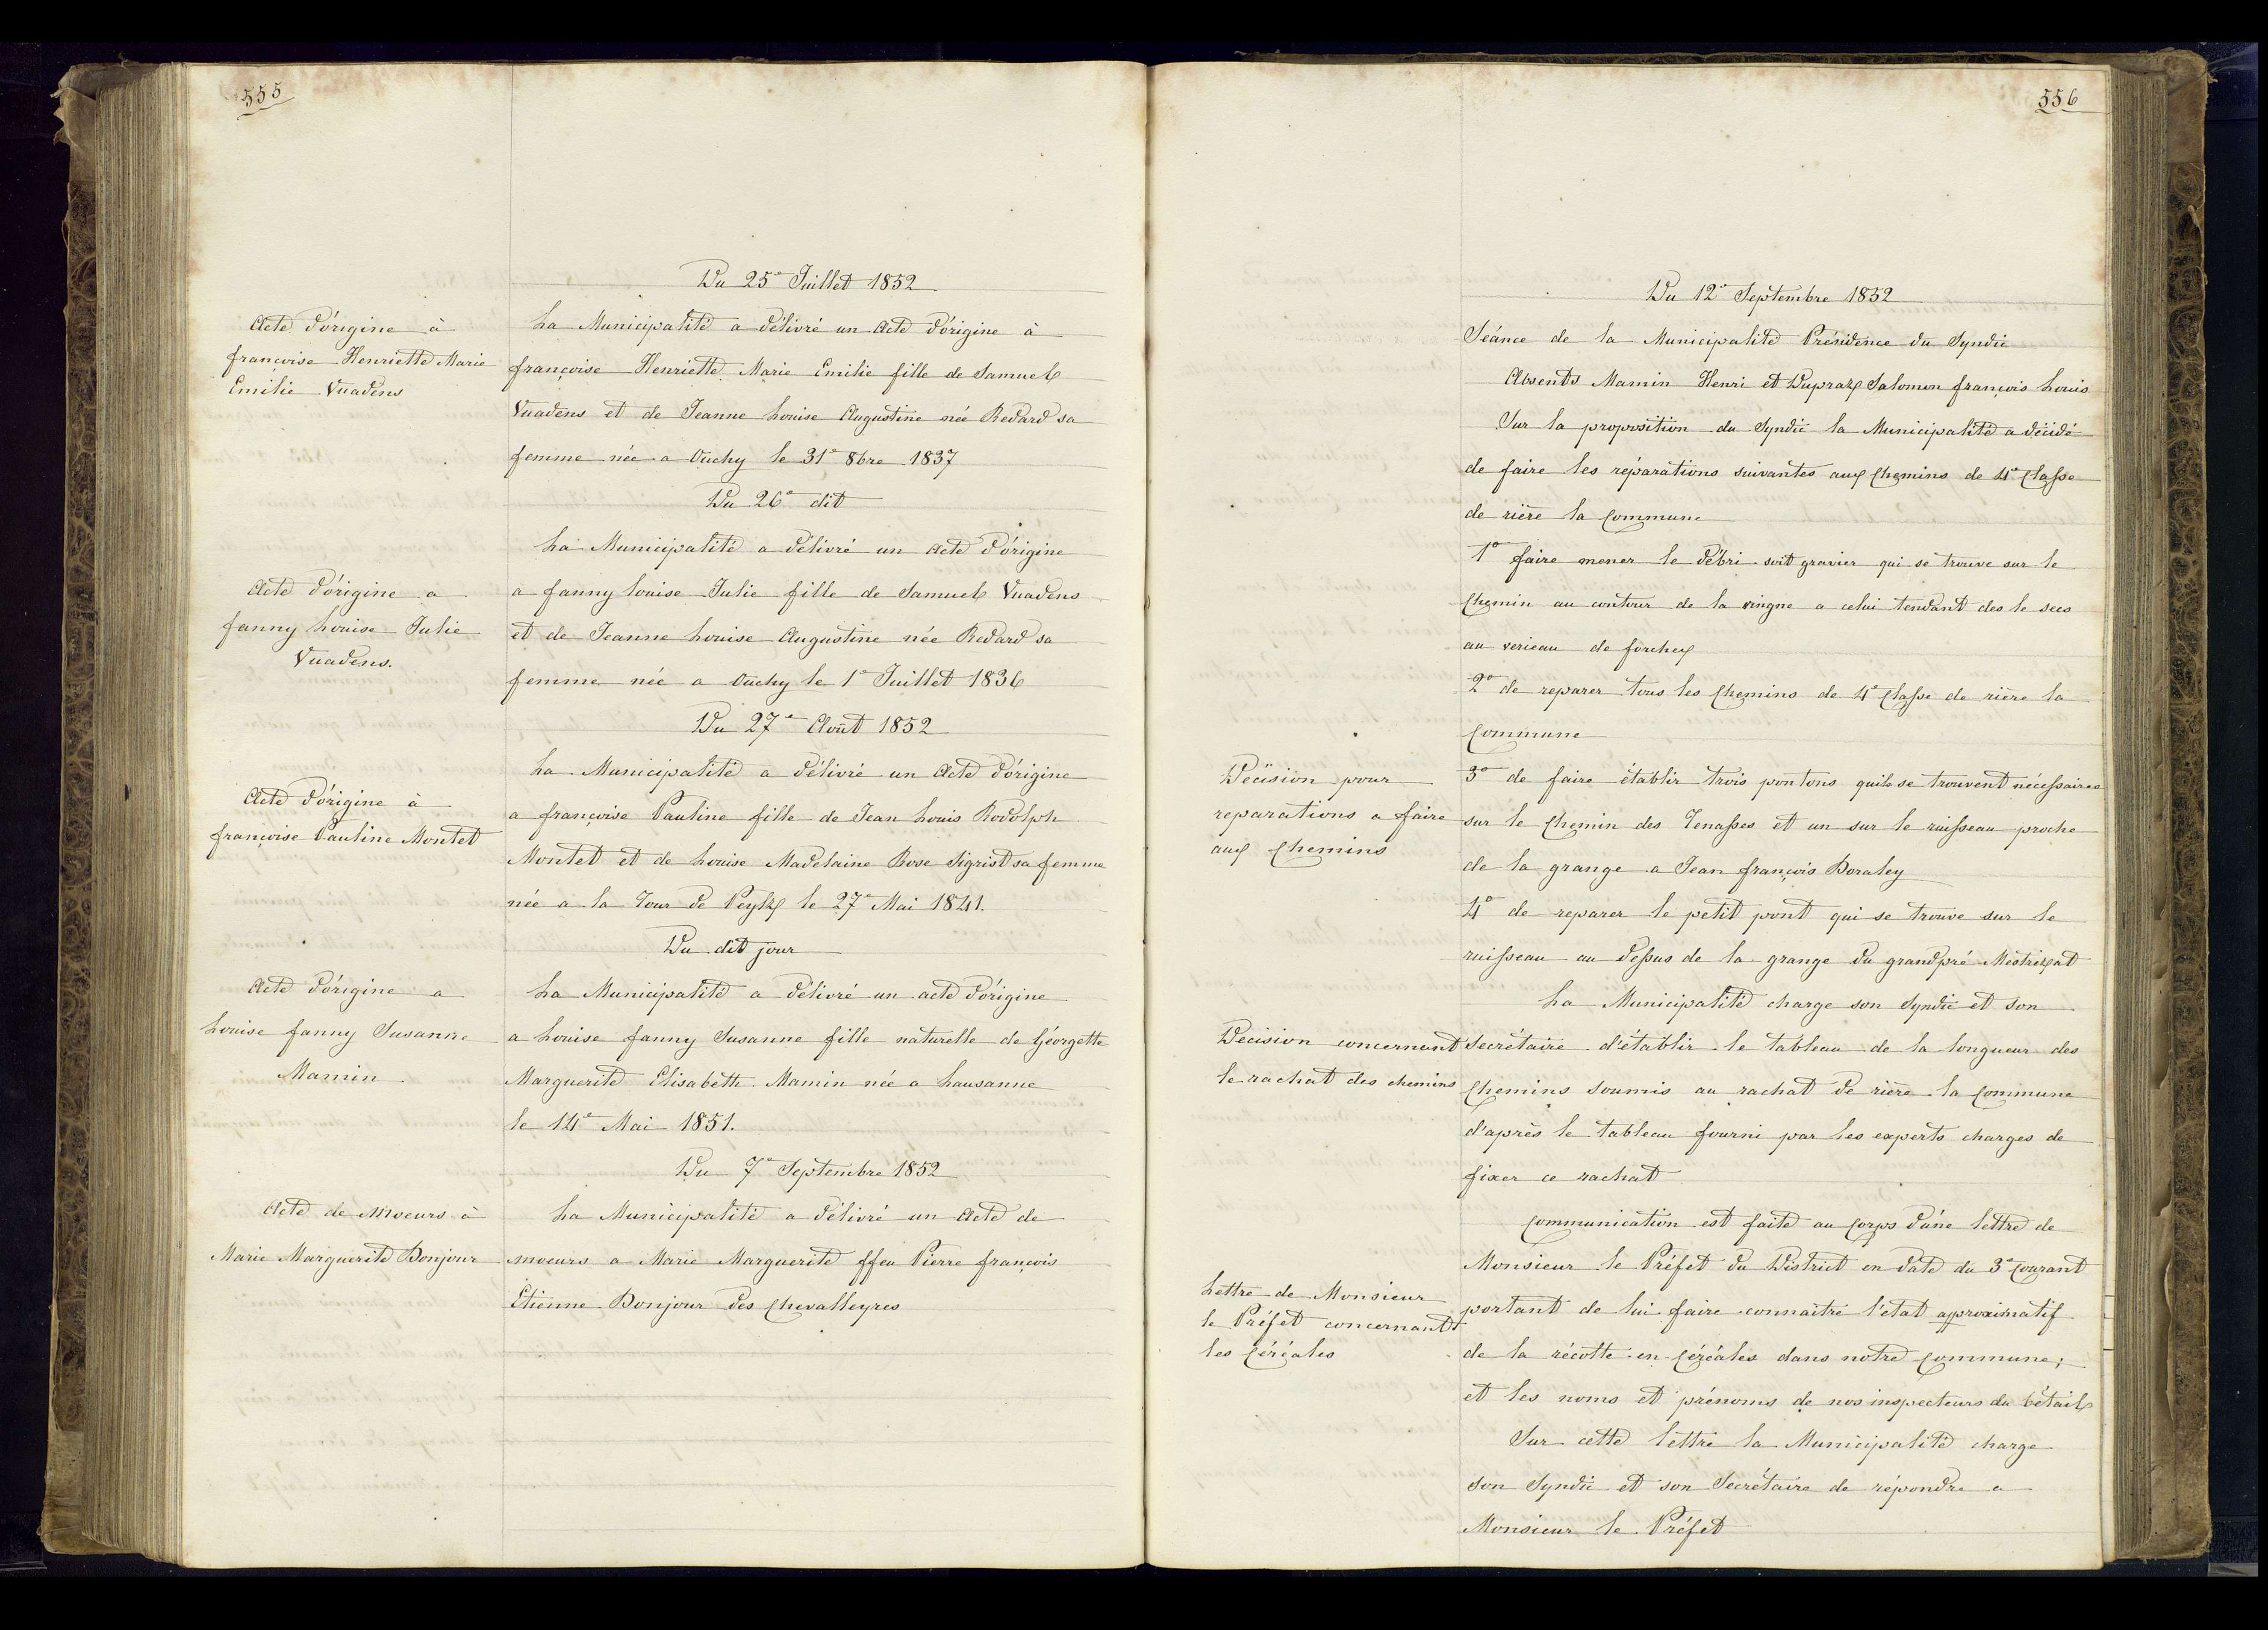 555
Du 25e Juillet 1852
Acte d'origine à
françoise Henriette Marie
Emilie Vuadens
La Municipalité a délivré un Acte d'origine à
françoise Henriette Marie Emilie fille de Samuel
Vuadens et de Jeanne Louise Augustine née Redard sa
femme née a Ouchy le 31e 8bre 1837
Du 26e dit
Acte d'origine a
fanny Louise Julie
Vuadens.
La Municipalité a délivré un Acte d'origine
a fanny louise Julie fille de Samuel Vuadens
et de Jeanne Louise Augustine née Redard sa
femme née a Ouchy le 1e Juillet 1836
Du 27e Août 1852
Acte d'origine à
françoise Pauline Montet
La Municipalité a délivré un Acte d'origine
a françoise Pauline fille de Jean Louis Rodolph
Montet et de Louise Madelaine Rose Sigrist sa femme
née a la Tour de Peylz le 27e Mai 1841.
Du dit jour
Acte d'origine a
Louise fanny Susanne
Mamin
La Municipalité a délivré un acte d'origine
a Louise fanny Susanne fille naturelle de Géorgette
Marguerite Elisabeth Mamin née a Lausanne
le 14e Mai 1851.
Du 7e Septembre 1852
Acte de Moeurs à
Marie Marguerite Bonjour
La Municipalité a délivré un Acte de
moeurs a Marie Marguerite ffeu Pierre françois
Etienne Bonjour des Chevalleyres
556
Du 12e Septembre 1852
Séance de la Municipalité Présidence du Syndic
Absents Mamin Henri et Dupraz Salomon françois Louis
Sur la proposition du Syndic la Municipalité a décidé
de faire les réparations suivantes aux Chemins de 4e Classe
de rière la Commune
1o faire mener le débri soit gravier qui se trouve sur le
Chemin au contour de la vingne a celui tendant des le
au de forchex
2o de reparer tous les Chemins de 4e Classe de rière la
Commune
Décision pour
reparations a faire
aux Chemins
3o de faire établir trois pontons quils se trouvent nécessaires
sur le Chemin des Tenasses et un sur le ruisseau proche
de la grange a Jean françois Boraley
4o de reparer le petit pont qui se trouve sur le
ruisseau au dessus de la grange du grandpré Mestrezat
Decision concernant
le rachat des chemins
La Municipalité charge son Syndic et son
Secrétaire d'établir le tableau de la longueur des
Chemins soumis au rachat de rière la Commune
d'après le tableau fourni par les experts charges de
fixer ce rachat
Lettre de Monsieur
le Préfet concernant
les Céréales
Communication est faite au Corps d'une lettre de
Monsieur le Préfet du District en date du 3e Courant
portant de lui faire connaitre l'etat approximatif
de la récolte en Céréales dans notre Commune;
et les noms et prénoms de nos inspecteurs du bétail
Sur cette lettre la Municipalité charge
son Syndic et son Secrétaire de répondre a
Monsieur le Préfet